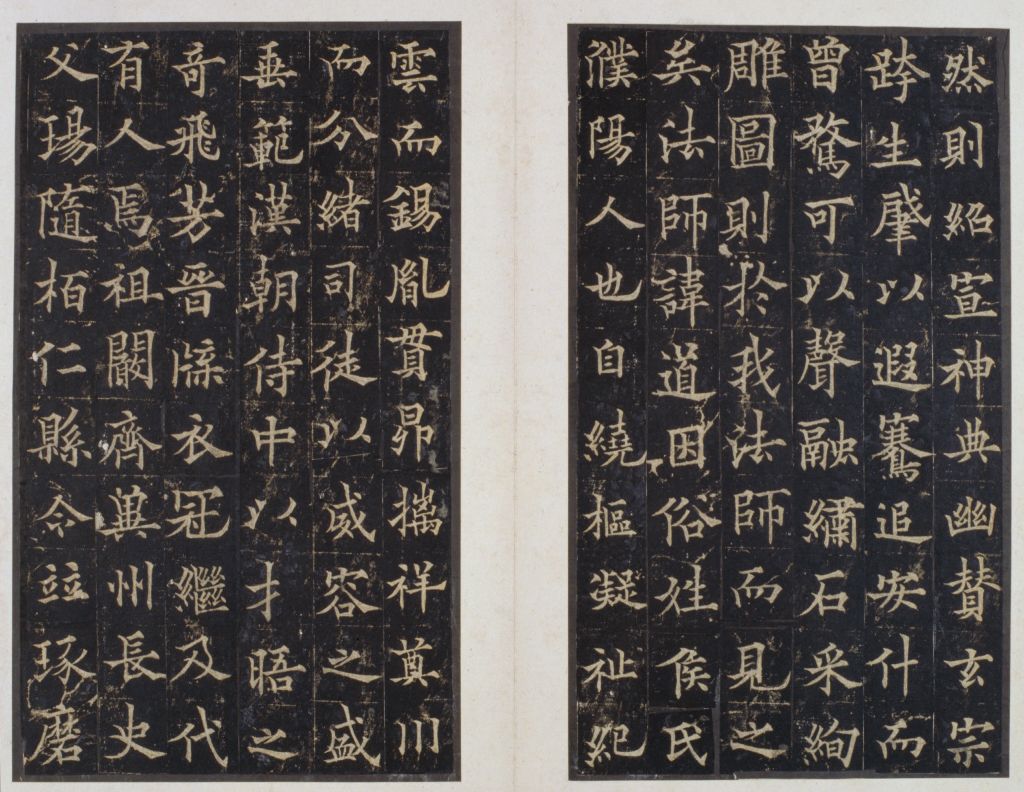 然則紹宣神典幽贊玄宗
跨生肇以遐騫追安什而
曾騖可以聲融繡石采絢
雕圖則於我法師而見之
矣法師諱道因俗姓侯氏
濮陽人也自繞樞凝祉紀
雲而錫胤貫昴攜祥奠川
而分緒司徒以威容之盛
垂範漢朝侍中以才晤之
奇飛芳晉牒衣冠繼及代
有人焉祖闞齊冀州長史
父瑒隨栢仁縣令竝琢磨